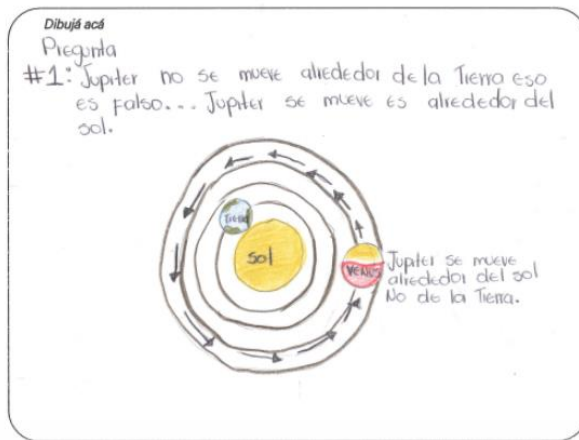 Dibujá acá
Pregunta
#1: Jupiter no se mueve alrededor de la Tierra eso
es falso... Jupiter se mueve es alrededor del
sol.
Tierra
Sol
VENUS
Jupiter se mueve
alrededor del sol
No de la Tierra.